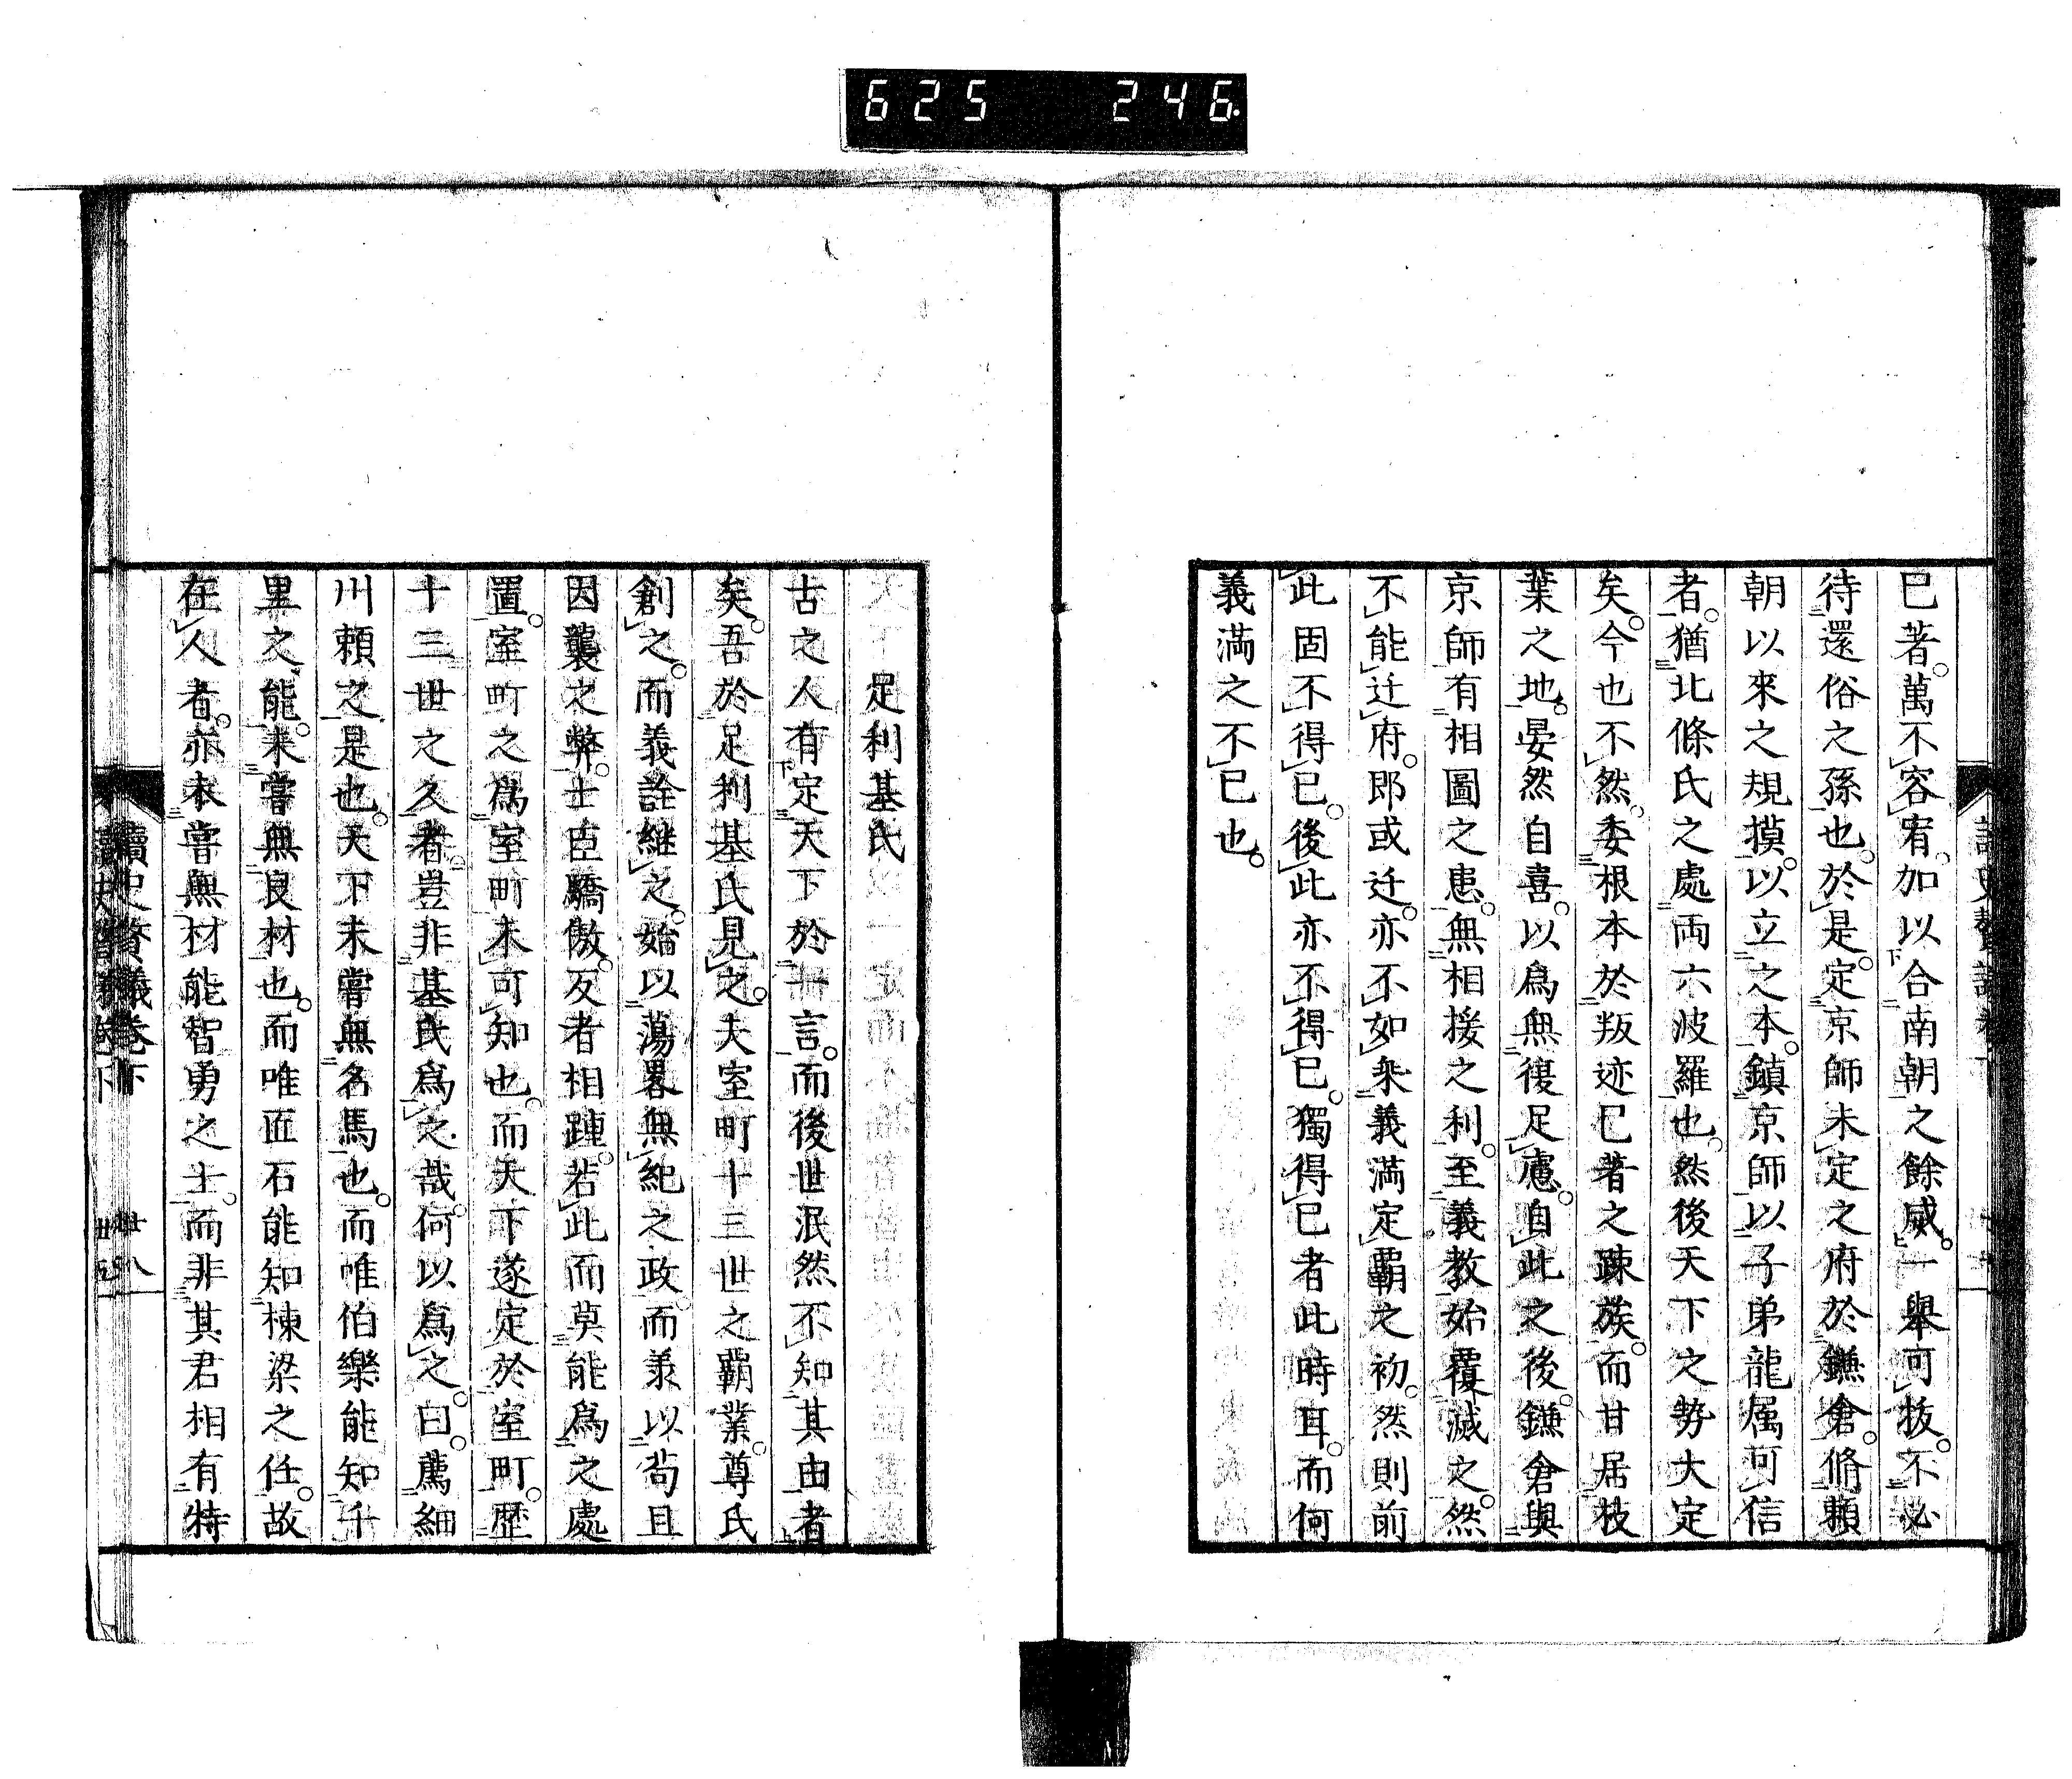 625 246.
已著。萬不容宥。加以合南朝之餘威。一舉可拔。不必
待還俗之孫也。於是。定京師未定之府於鎌倉。脩頼
朝以來之規摸。以立之本。鎮京師以子弟龍属可信
者。猶北條氏之處両六波羅也。然後天下之勢大定
矣。今也不然。委根本於叛迹已著之疎族。而甘居枝
葉之地。晏然自喜。以爲無復足慮。自此之後。鎌倉與
京師有相圖之患。無相接之利。至義教始覆滅之。然
不能迁府。即或迁。亦不如來義満定覇之初。然則前
此固不得已。後此亦不得已。獨得已者此時耳。而何
義満之不已也。
足利基氏
古之人有定天下於一言。而後世泯然不知其由者
矣。吾於足利基氏見之。夫室町十三世之覇業。尊氏
創之。而義詮継之。始以蕩畧無紀之政。而羕以苟且
因襲之弊。士臣驕傲。反者相踵。若此而莫能爲之處
置。室町之爲室町未可知也。而天下遂定於室町。歴
十三世之久者。豈非基氏爲之哉。何以爲之。曰。薦細
川頼之是也。天下未嘗無名馬也。而唯伯樂能知千
里之能。未嘗無良材也。而唯匠石能知棟梁之任。故
在人者。亦未嘗無材能智勇之士。而非其君相有特
讀史贅議卷下 廿八